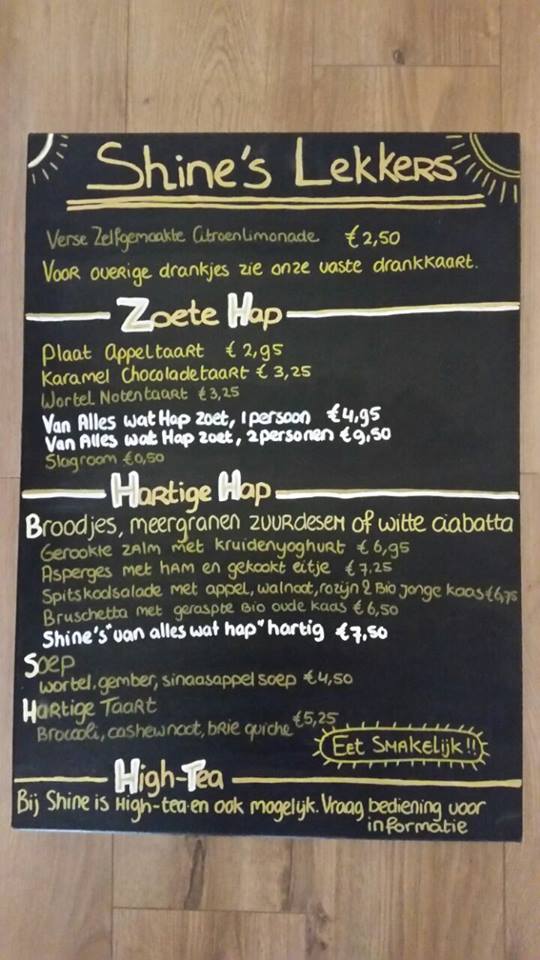 Shine's Lekkers
Verse Zelfgemaakte Citroenlimonade € 2,50
Voor overige drankjes zie onze vaste drankkaart.
Zoete Hap
Plaat Appeltaart € 2,95
Karamel Chocoladetaart € 3,25
Wortel Notentaart € 3,25
Van Alles wat Hap zoet, 1 persoon €4,95
Van Alles wat Hap zoet, 2 personen €9,50
Slagroom €0,50
Hartige Hap
Broodjes, meergranen zuurdesem of witte ciabatta
Gerookte zalm met kruidenyoghurt € 6,95
Asperges met ham en gekookt eitje € 7,25
Spitskoolsalade met appel, walnoot, rozijn & Bio jonge kaas €6,75
Bruschetta met geraspte Bio oude kaas € 6,50
Shine's "van alles wat hap" hartig €7,50
Soep
wortel, gember, sinaasappel soep €4,50
Hartige Taart
Brocooli, cashewnoot, brie quiche €5,25
Eet Smakelijk!!
High-Tea
Bij Shine is High-tea en ook mogelijk. Vraag bediening voor
informatie